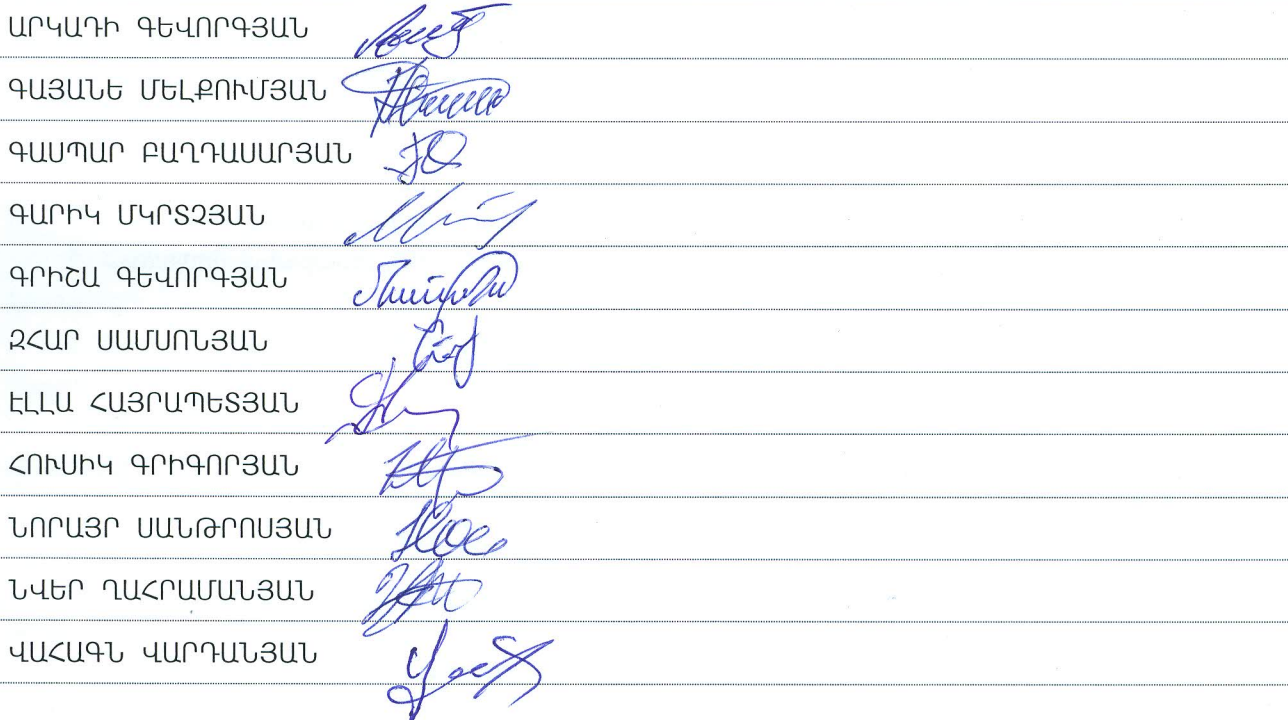 ԱՐԿԱԴԻ ԳԵՎՈՐԳՅԱՆ
ԳԱՅԱՆԵ ՄԵԼՔՈՒՄՅԱՆ
ԳԱՍՊԱՐ ԲԱՂԴԱՍԱՐՅԱՆ
ԳԱՐԻԿ ՄԿՐՏՉՅԱՆ
ԳՐԻՇԱ ԳԵՎՈՐԳՅԱՆ
ԶՀԱՐ ՍԱՄՍՈՆՅԱՆ
ԷԼԼԱ ՀԱՅՐԱՊԵՏՅԱՆ
ՀՈՒՍԻԿ ԳՐԻԳՈՐՅԱՆ
ՆՈՐԱՅՐ ՍԱՆԹՐՈՍՅԱՆ
ՆՎԵՐ ՂԱՀՐԱՄԱՆՅԱՆ
ՎԱՀԱԳՆ ՎԱՐԴԱՆՅԱՆ